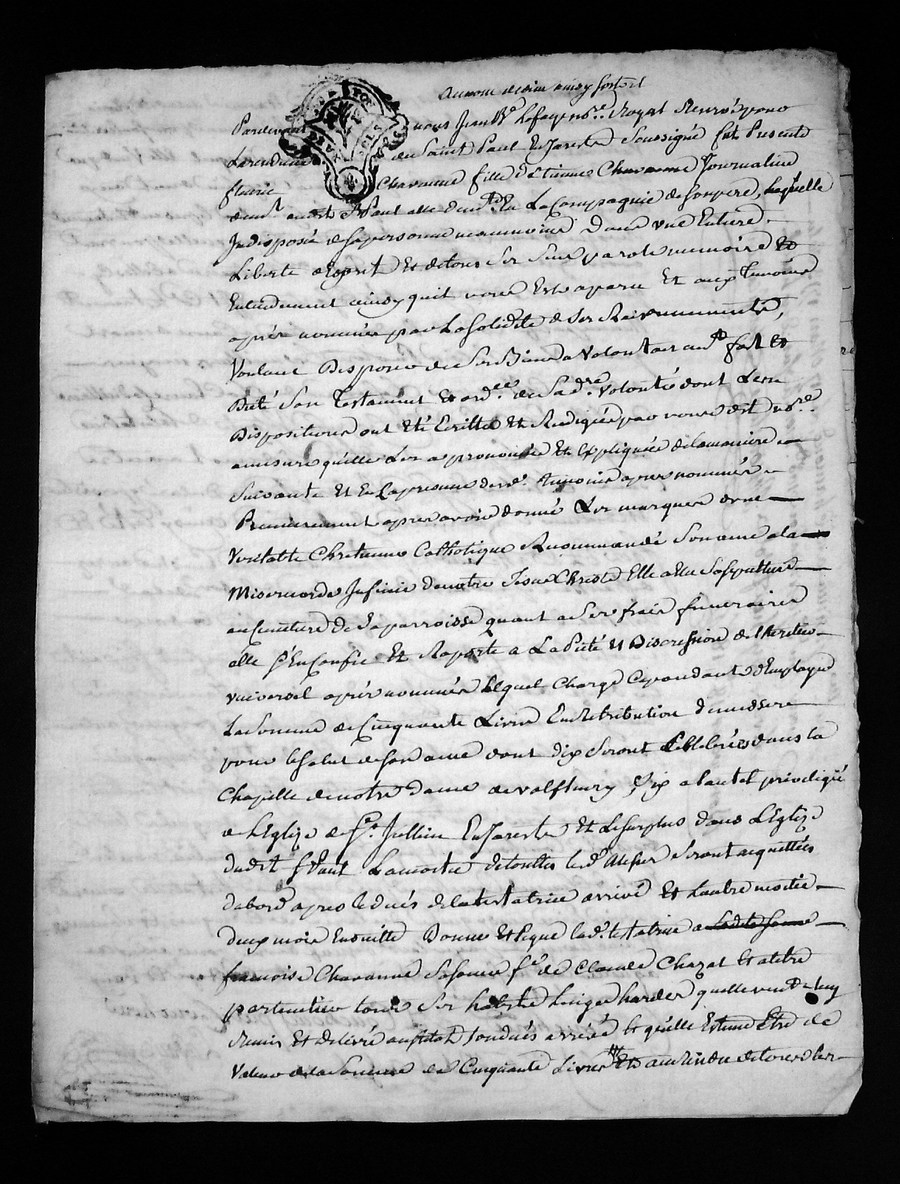 au nom de dieu ainsy soit il
Pardevant nous Jean Bte Lafay nore Royal Reservé pour
La residence de Saint Paul En Jarests Soussigné fut Presente
fleurie Chavanne fille d'Etienne Chavanne Journalier
demt audit St Paul elle demte En La Compagnie de son pere, laquelle
Indisposée de sa personne neanmoins dans une Entiere
Liberté d'Esprit Et de tous Ses Sens parole memoire Et
Entendement ainsy quil nous Est aparu Et aux temoins
après nommés par La Solidité de Ses Raisonnements,
Voulant Disposer de Ses Biens a volontairemt fait Et
Dicté Son Testament Et ordce de Sa dre Volonté dont Les
Dispositions ont été Ecrittes Et Redigées par nous dit nore
a mesure qu'elle Les a prononcée Et Expliquée de la maniere
Suivante Et En La presence des temoins apres nommés
Premierement apres avoir donné Les marques d'une
Veritable Chretienne Catholique Recommandé Son ame a la
Misericorde Infinie de notre Jesus Christ Elle a Elu Sa Sepulture
au Cimetiere de Sa parroisse quant a Ses frais funeraires
elle S'En Confie Et Raporte a La Pieté Et Discression de l'heritier
universel après nommée Lequel Charge Cependant d'Employer
La Somme de Cinquante Livres En Retribution de messes
pour le Salut de Son ame dont dix Seront Celebrées dans la
Chapelle de notre dame de valfleury, dix a l'autel privilegié
de l'Eglize de St Jullien En Jarests Et Le Surplus dans l'Eglize
dudit St Paul La moitié de touttes les d. Messes Seront acquittées
dabord apres le decés de la testatrice arrivé Et l'autre moitié
deux mois Ensuitte Donne Et legue la de testatrice a
francoise Chavanne Sa Soeur fe de Claude Chazat Et a titre
particulier tous Ses habits linges hardes quelle veut
Remis Et delivré aussitot Son decés arrivé Et qu'elle Estime Etre de
Valeur de la Somme de Cinquante Livres Et au Residu de tous les